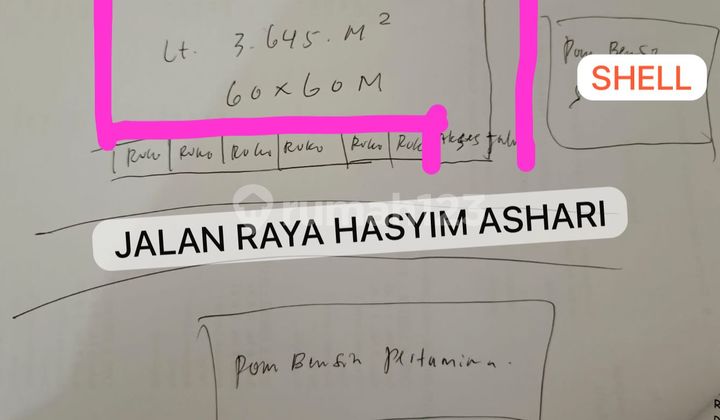 Lt. 3.645. M²
60 x 60 M
Pom Bensin
SHELL
Ruko Ruko Ruko Ruko Ruko Ruko Akses Jalan
rumah123
JALAN RAYA HASYIM ASHARI
Pom Bensin Pertamina.